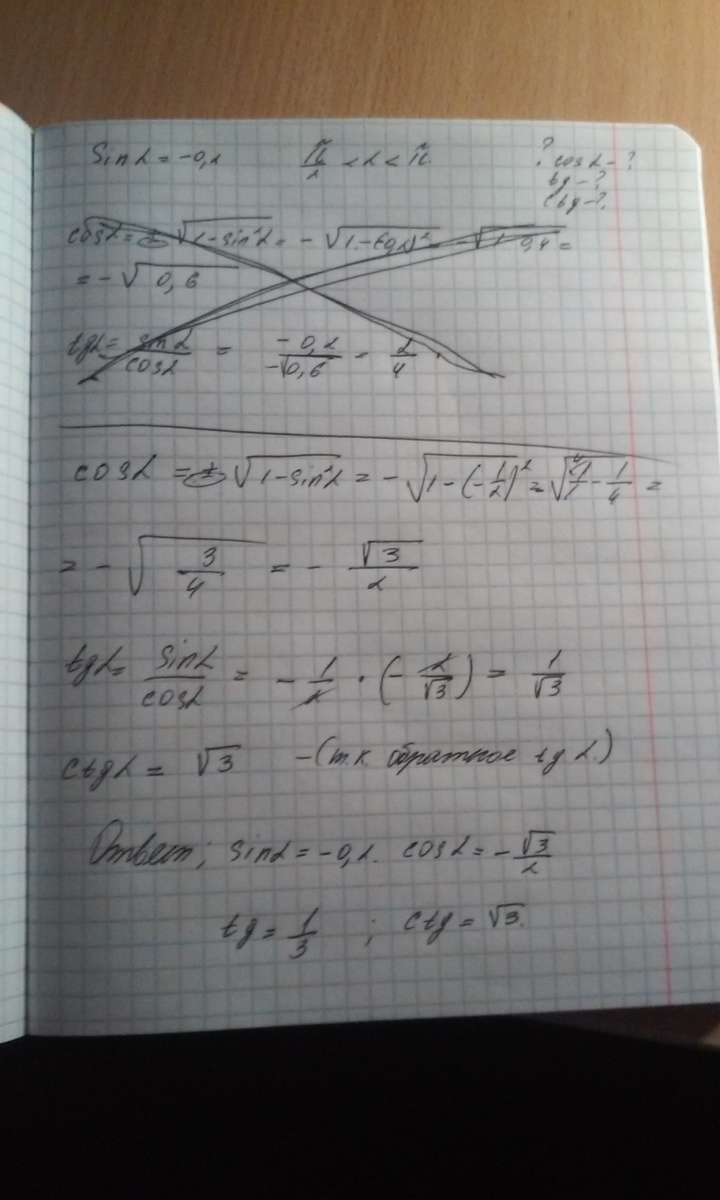 sin α = -0,2   π/2 < α < π   ? cos α - ?
tg - ?
ctg - ?
cos α = ± √(1 - sin²α) = - √(1 - (0,2)² = - √(1 - 0,4 =
= - √(0,6
tg α = sin α / cos α = -0,2 / -√0,6 = 2/4 .
cos α = ± √(1 - sin²α) = - √(1 - (-1/2)² = √(4/1 - 1/4 =
= - √(3/4) = - √3/2
tg α = sin α / cos α = - 1/2 · (- 2/√3) = 1/√3
ctg α = √3 - (т.к. обратное tg α.)
Ответ; sin α = -0,2. cos α = - √3/2
tg = 1/3 ; ctg = √3.